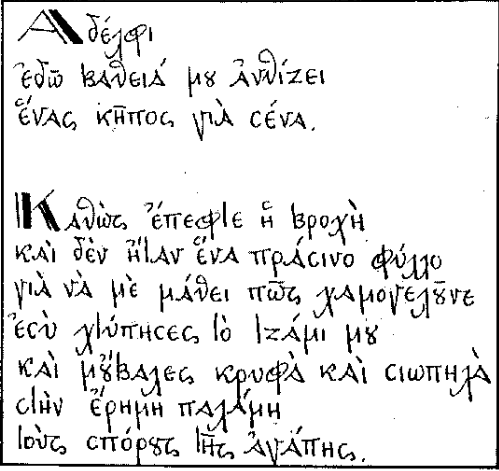 Ἀδέλφι
ἐδῶ βαθειά μου ἀνθίζει
ἕνας κῆπος γιὰ σένα.
Καθὼς ἔπεφτε ἡ βροχὴ
καὶ δὲν ἦταν ἕνα πράσινο φύλλο
γιὰ νὰ μὲ μάθει πῶς χαμογελοῦνε
ἐσὺ χτύπησες τὸ τζάμι μου
καὶ μοὔβαλες κρυφὰ καὶ σιωπηλὰ
στὴν ἔρημη παλάμη
τοὺς σπόρους τῆς ἀγάπης.